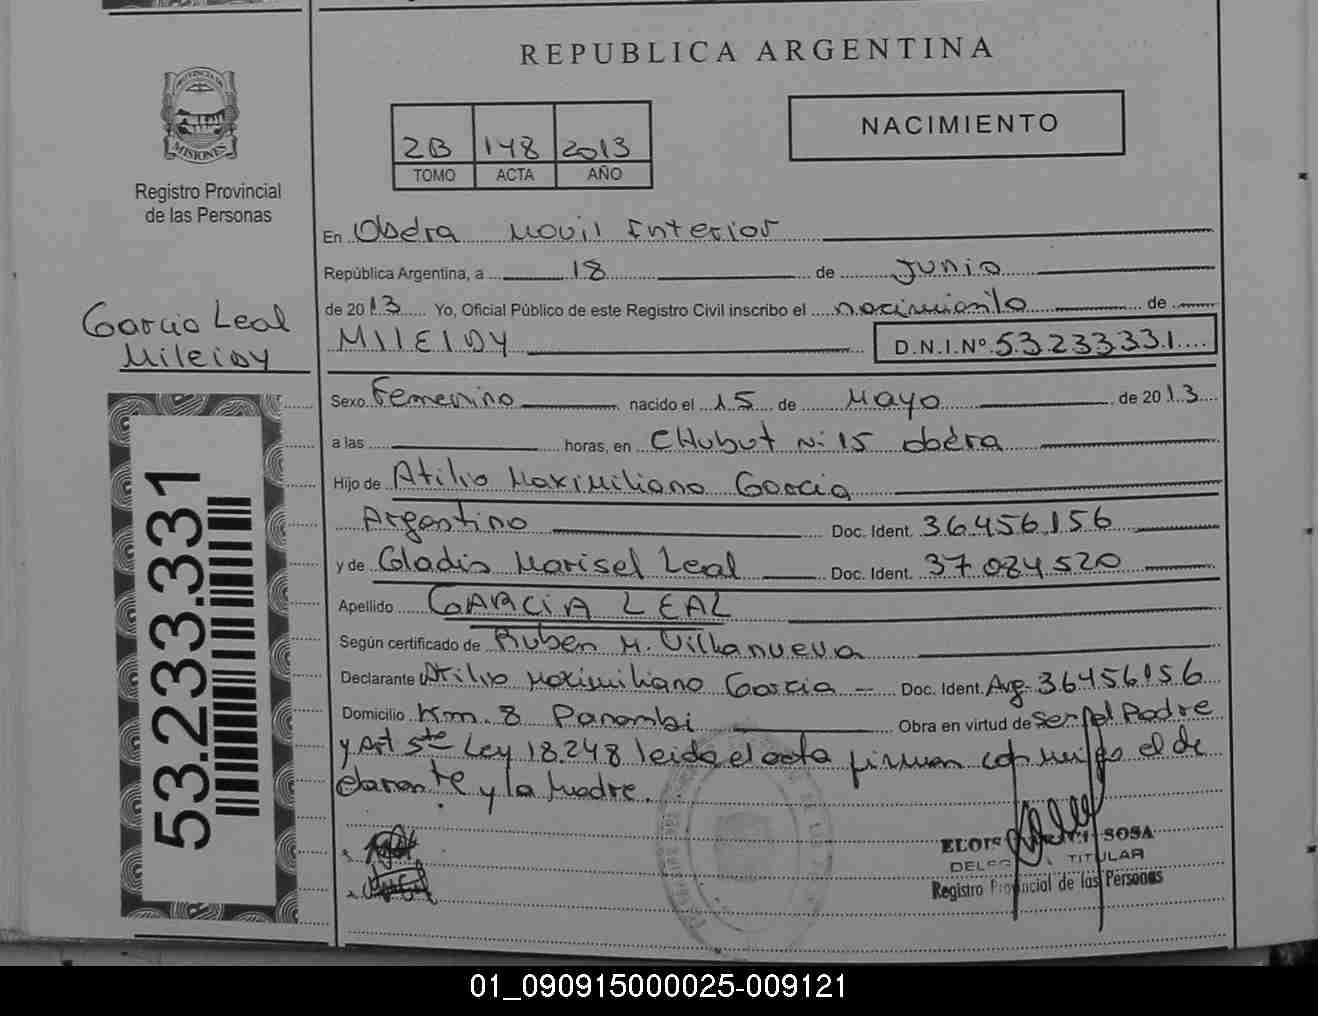 REPUBLICA ARGENTINA
PROVINCIA DE
MISIONES
Registro Provincial
de las Personas
2B 148 2013
TOMO ACTA AÑO
NACIMIENTO
En Oberá Movil Interior
República Argentina, a 18 de Junio
de 2013 Yo, Oficial Público de este Registro Civil inscribo el nacimiento de
MILEIDY D.N.I.Nº 53.233.331
Garcia Leal
Mileidy
Sexo Femenino nacido el 15 de Mayo de 2013
a las horas, en CHubut N: 15 oberá
Hijo de Atilio Maximiliano Garcia
Argentino Doc. Ident. 36456156
y de Gladis Marisel Leal Doc. Ident. 37084520
Apellido GARCIA LEAL
Según certificado de Ruben M. Villanueva
Declarante Atilio Maximiliano Garcia Doc. Ident. Arg. 36456156
Domicilio Km. 8 Panambi Obra en virtud de ser el Padre
y Art 5te Ley 18.248 leida el acta firman conmigo el de
clarante y la Madre.
53.233.331
SOSA
TITULAR
Registro Provincial de las Personas
01_090915000025-009121